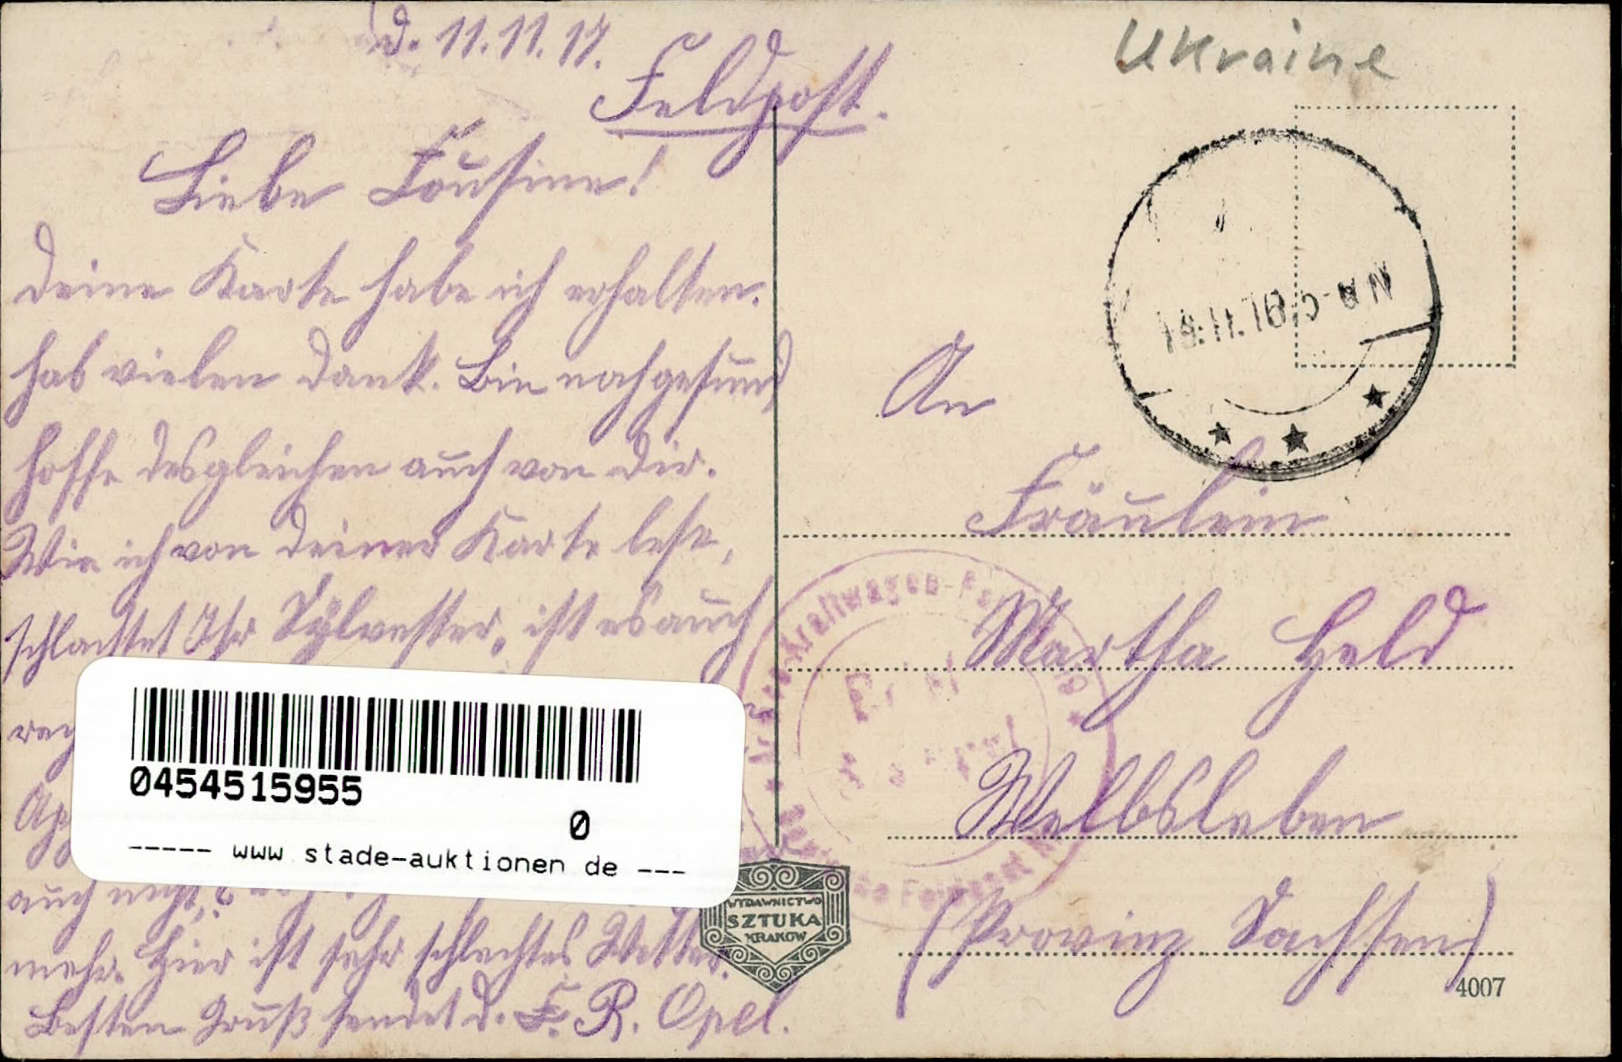 d. 11.11.17.
Feldpost.
Liebe Cousine!
Deine Karte habe ich erhalten.
hab vielen Dank. Bin noch gesund
hoffe desgleichen auch von Dir.
Wie ich von deiner Karte lese,
schlachtet Ihr Sylvester, ist es auch
auch nicht,
mehr. Hier ist sehr schlechtes Wetter.
Besten Gruß sendet d. C. R. Opel.
Ukraine
An
Fräulein
Martha Held
Welbsleben
(Provinz Sachsen)
WYDAWNICTWO
SZTUKA
KRAKÓW
4007
0454515955
0
----- www.stade-auktionen de ---